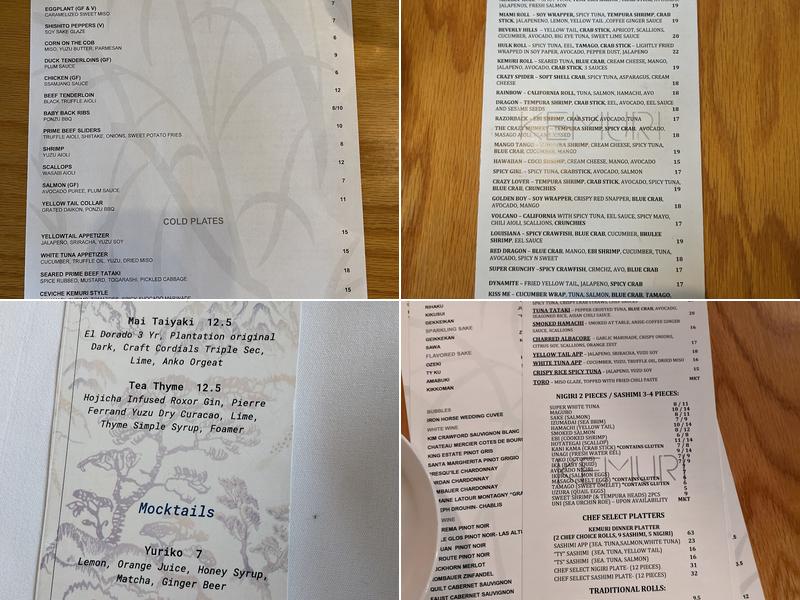 7
EGGPLANT (GF & V)
CARAMELIZED SWEET MISO
7
SHISHITO PEPPERS (V)
SOY SAKE GLAZE
6
CORN ON THE COB
MISO, YUZU BUTTER, PARMESAN
9
DUCK TENDERLOINS (GF)
PLUM SAUCE
6
CHICKEN (GF)
SSAMJANG SAUCE
12
BEEF TENDERLOIN
BLACK TRUFFLE AIOLI
8/10
BABY BACK RIBS
PONZU BBQ
10
PRIME BEEF SLIDERS
TRUFFLE AIOLI, SHIITAKE, ONIONS, SWEET POTATO FRIES
8
SHRIMP
YUZU AIOLI
12
SCALLOPS
WASABI AIOLI
7
SALMON (GF)
AVOCADO PUREE, PLUM SAUCE
11
YELLOW TAIL COLLAR
GRATED DAIKON, PONZU BBQ
COLD PLATES
15
YELLOWTAIL APPETIZER
JALAPEÑO, SRIRACHA, YUZU SOY
15
WHITE TUNA APPETIZER
CUCUMBER, TRUFFLE OIL, YUZU, DRIED MISO
18
SEARED PRIME BEEF TATAKI
SPICE RUBBED, MUSTARD, TOGARASHI, PICKLED CABBAGE
15
CEVICHE KEMURI STYLE
JALAPENOS, FRESH SALMON 19
MIAMI ROLL – SOY WRAPPER, SPICY TUNA, TEMPURA SHRIMP, CRAB
STICK, JALAPENENO, LEMON, YELLOW TAIL, COFFEE GINGER SAUCE 19
BEVERLY HILLS – YELLOW TAIL, CRAB STICK, APRICOT, SCALLIONS,
CUCUMBER, AVOCADO, BIG EYE TUNA, SWEET LIME SAUCE 20
HULK ROLL – SPICY TUNA, EEL, TAMAGO, CRAB STICK – LIGHTLY FRIED
WRAPPED IN SOY PAPER, AVOCADO, PEPPER DUST, JALAPENO 22
KEMURI ROLL – SEARED TUNA, BLUE CRAB, CREAM CHEESE, MANGO,
JALAPENO, AVOCADO, CRAB STICK, 3 SAUCES 19
CRAZY SPIDER – SOFT SHELL CRAB, SPICY TUNA, ASPARAGUS, CREAM
CHEESE 18
RAINBOW – CALIFORNIA ROLL, TUNA, SALMON, HAMACHI, AVO 18
DRAGON – TEMPURA SHRIMP, CRAB STICK, EEL, AVOCADO, EEL SAUCE
AND SESAME SEEDS 18
RAZORBACK – EBI SHRIMP, CRAB STICK, AVOCADO, TUNA 17
THE CRAZY MONKEY – TEMPURA SHRIMP, SPICY CRAB, AVOCADO,
MASAGO AIOLI, FLAME KISSED 18
MANGO TANGO – TEMPURA SHRIMP, CREAM CHEESE, SPICY TUNA,
BLUE CRAB, CUCUMBER, MANGO 19
HAWAIIAN – COCO SHRIMP, CREAM CHEESE, MANGO, AVOCADO 15
SPICY GIRL – SPICY TUNA, CRABSTICK, AVOCADO, SALMON 17
CRAZY LOVER – TEMPURA SHRIMP, CRAB STICK, AVOCADO, SPICY TUNA,
BLUE CRAB, CRUNCHIES 19
GOLDEN BOY – SOY WRAPPER, CRISPY RED SNAPPER, BLUE CRAB,
AVOCADO, MANGO 18
VOLCANO – CALIFORNIA WITH SPICY TUNA, EEL SAUCE, SPICY MAYO,
CHILI AIOLI, SCALLIONS, CRUNCHIES 17
LOUISIANA – SPICY CRAWFISH, BLUE CRAB, CUCUMBER, BRULEE
SHRIMP, EEL SAUCE 19
RED DRAGON – BLUE CRAB, MANGO, EBI SHRIMP, CUCUMBER, TUNA,
AVOCADO, SPICY N SWEET 18
SUPER CRUNCHY – SPICY CRAWFISH, CRMCHZ, AVO, BLUE CRAB 17
DYNAMITE – FRIED YELLOW TAIL, JALAPENO, SPICY CRAB 17
KISS ME – CUCUMBER WRAP, TUNA, SALMON, BLUE CRAB, TAMAGO,
Mai Taiyaki 12.5
El Dorado 3 Yr, Plantation original
Dark, Craft Cordials Triple Sec,
Lime, Anko Orgeat
Tea Thyme 12.5
Hojicha Infused Roxor Gin, Pierre
Ferrand Yuzu Dry Curacao, Lime,
Thyme Simple Syrup, Foamer
Mocktails
Yuriko 7
Lemon, Orange Juice, Honey Syrup,
Matcha, Ginger Beer
RIHAKU
KIKUSUI
GEKKEIKAN
SPARKLING SAKE
GEIKKEKAN
SAWA
FLAVORED SAKE
OZEKI
TY KU
AMABUKI
KIKKOMAN
BUBBLES
IRON HORSE WEDDING CUVEE
WHITE WINE
KIM CRAWFORD SAUVIGNON BLANC
CHATEAU MERCIER COTES DE BOURG
KING ESTATE PINOT GRIS
SANTA MARGHERITA PINOT GRIGIO
CHARDONNAY
CHARDONNAY
CHARDONNAY
LATOUR MONTAGNY
DROUHIN- CHABLIS
WINE
PINOT NOIR
PINOT NOIR- LAS
PINOT NOIR
ROUTE PINOT NOIR
MERLOT
ZINFANDEL
CABERNET SAUVIGNON
CABERNET SAUVIGNON
TUNA TATAKI – PEPPER CRUSTED TUNA, BLUE CRAB, AVOCADO,
SEASONED RICE, ASIAN CHILI SAUCE. 20
SMOKED HAMACHI – SMOKED AT TABLE, ANISE-COFFEE GINGER
SAUCE, SCALLIONS 16
CHARRED ALBACORE – GARLIC MARINADE, CRISPY ONIONS,
CITRUS SOY, SCALLIONS, ORANGE ZEST 17
YELLOW TAIL APP – JALAPENO, SRIRACHA, YUZU SOY 18
WHITE TUNA APP – CUCUMBER, YUZU, TRUFFLE OIL, DRIED MISO 16
CRISPY RICE SPICY TUNA – JALAPENO, YUZU SOY 15
TORO – MISO GLAZE, TOPPED WITH FRIED CHILI PASTE MKT
NIGIRI 2 PIECES / SASHIMI 3-4 PIECES:
SUPER WHITE TUNA 8 / 11
MAGURO 10 / 14
SAKE (SALMON) 8 / 11
IZUMIDAI (SEA BRIM)
HAMACHI (YELLOW TAIL)
SMOKED SALMON
EBI (COOKED SHRIMP)
HOTATEGAI (SCALLOP)
KANI KAMA (CRAB STICK) *CONTAINS GLUTEN
UNAGI (FRESH WATER EEL)
TAKO (OCTOPUS)
IKA (BABY SQUID)
AVOCADO NIGIRI
IKURA (SALMON EGGS)
MASAGO (SMELT EGGS) *CONTAINS GLUTEN
TAMAGO (SWEET OMELET) *CONTAINS GLUTEN
UZURA (QUAIL EGGS)
SWEET SHRIMP (& TEMPURA HEADS) 2PCS 9
UNI (SEA URCHIN ROE) – UPON AVAILABILITY MKT
CHEF SELECT PLATTERS
KEMURI DINNER PLATTER
(2 CHEF CHOICE ROLLS, 9 SASHIMI, 5 NIGIRI) 63
SASHIMI APP (3EA. TUNA,SALMON,WHITE TUNA) 23
"TY" SASHIMI (3EA. TUNA, YELLOW TAIL) 16
"TS" SASHIMI (3EA. TUNA, SALMON) 16
CHEF SELECT NIGIRI PLATE- (12 PIECES) 31
CHEF SELECT SASHIMI PLATE- (12 PIECES) 32
TRADITIONAL ROLLS:
9.5
3.5
12